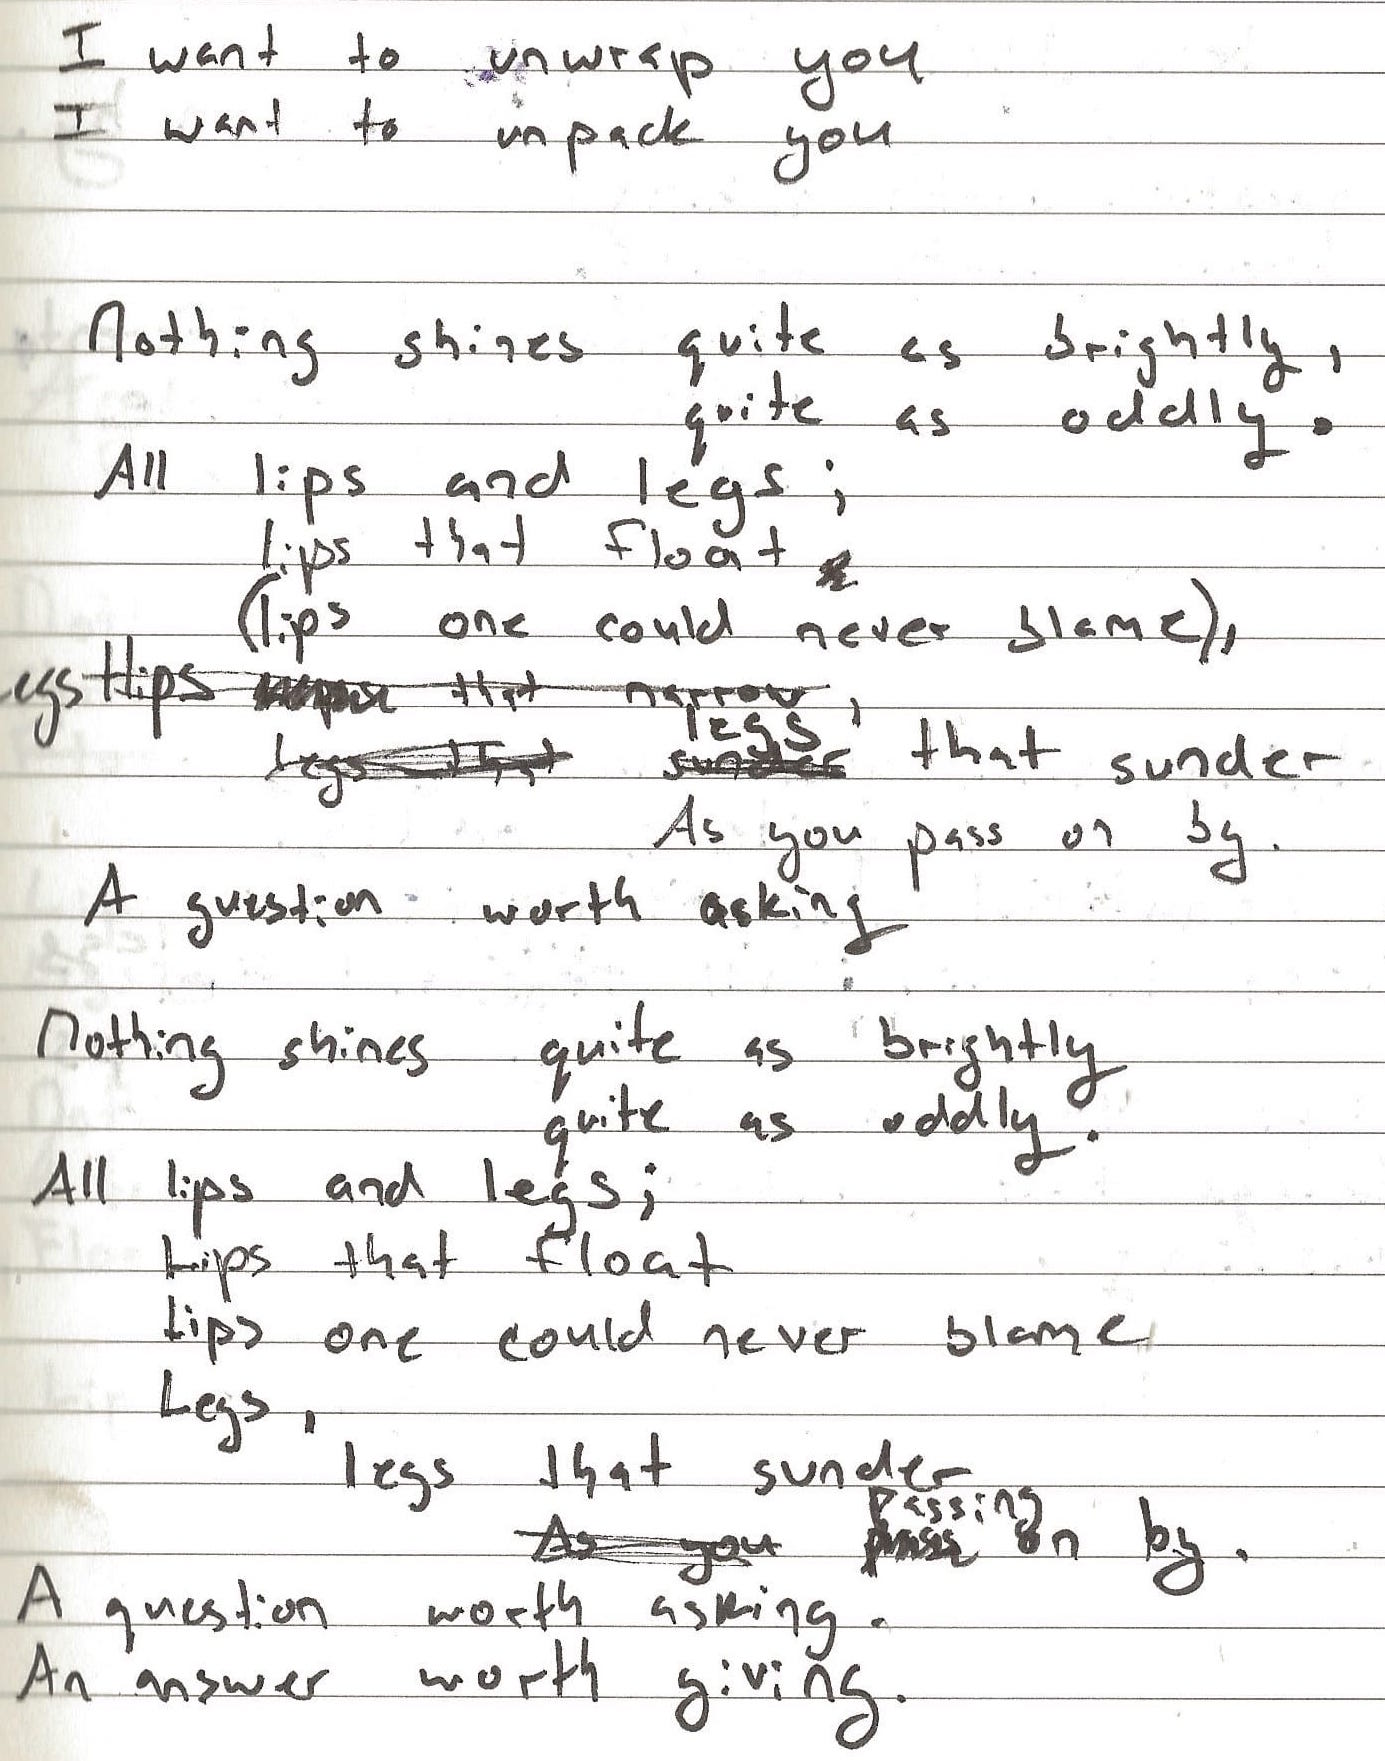 I want to unwrap you
I want to unpack you
Nothing shines quite as brightly,
quite as oddly.
All lips and legs;
lips that float
(lips one could never blame),
egs Hips that narrow,
legs
Legs that sunder that sunder
As you pass on by.
A question worth asking
Nothing shines quite as brightly
quite as oddly.
All lips and legs;
Lips that float
Lips one could never blame
Legs,
legs that sunder
passing
As you on by.
A question worth asking.
An answer worth giving.